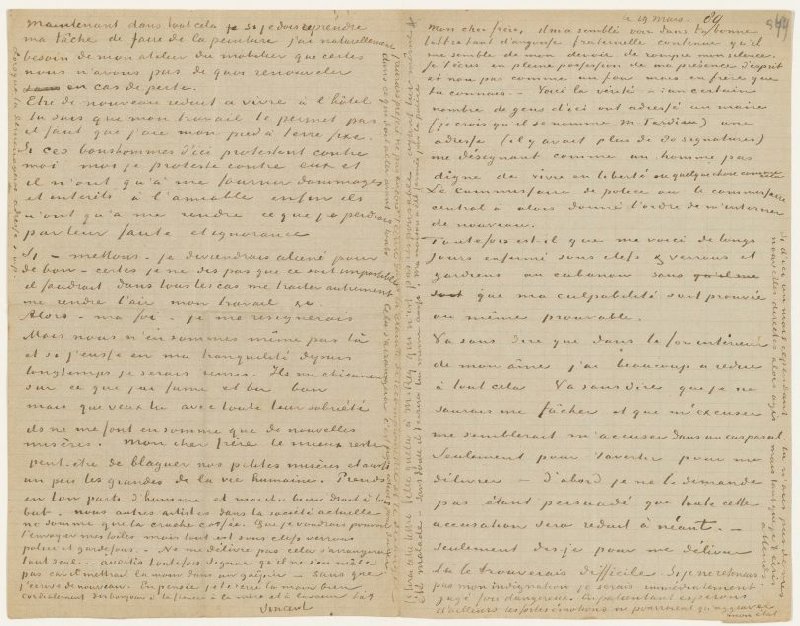 maintenant dans tout cela je si je dois reprendre
ma tâche de faire de la peinture j'ai naturellement
besoin de mon atelier du mobilier que certes
nous n'avons pas de quoi renouveler
en cas de perte.
Etre de nouveau reduit à vivre à l'hôtel
tu sais que mon travail le permet pas
il faut que j'aie mon pied à terre fixe.
Si ces bonshommes d'ici protestent contre
moi moi je proteste contre eux et
ils n'ont qu'à me fournir dommages
et intérêts à l'amiable enfin ils
n'ont qu'à me rendre ce que je perdrais
par leur faute et ignorance
Si – mettons – je deviendrais aliéné pour
de bon – certes je ne dis pas que ce soit impossible
il faudrait dans tous les cas me traiter autrement
me rendre l'air mon travail &c.
Alors – ma foi – je me resignerais
Mais nous n'en sommes même pas là
et si j'eusse eu ma tranquilité depuis
longtemps je serais remis. Ils me chicanent
sur ce que j'ai fumé et bu bon
mais que veux tu avec toute leur sobriété
ils ne me font en somme que de nouvelles
misères. Mon cher frère le mieux reste
peut.etre de blaguer nos petites misères et aussi
un peu les grandes de la vie humaine. Prends
en ton parti d'homme et marche bien droit à ton
but. nous autres artistes dans la société actuelle
ne somme que la cruche cassée. Que je voudrais pouvoir
t'envoyer mes toiles mais tout est sous clefs verrous
police et garde fous. – Ne me délivre pas cela s'arrangera
tout seul. avertis toutefois Signac qu'il ne s'en mêle
pas car il mettrait la main dans un guêpier – sans que
j'écrive de nouveau. En pensée je te serre la main bien
cordialement dis bonjour à ta fiancée à la mère et à la soeur t. à. t.
Vincent
le 19 mars. 89
Mon cher frère, il m'a semblé voir dans ta bonne
lettre tant d'angoisse fraternelle contenue qu'il
me semble de mon devoir de rompre mon silence.
Je t'écris en pleine possession de ma présence d'esprit
et non pas comme un fou mais en frère que
tu connais. – Voici la vérité – un certain
nombre de gens d'ici ont adressé au maire
(je crois qu'il se nomme M. Tardieu) une
adresse (il y avait plus de 30 signatures)
me désignant comme un homme pas
digne de vivre en liberté ou quelque chose comme cela
Le commissaire de police ou le commissaire
central a alors donné l'ordre de m'interner
de nouveau.
Toutefois est il que me voici de longs
jours enfermé sous clefs & verrous et
gardiens au cabanon sans
que ma culpabilité soit prouvée
ou même prouvable.
Va sans dire que dans le for intérieur
de mon âme j'ai beaucoup à redire
à tout cela Va sans dire que je ne
saurais me fâcher et que m'excuser
me semblerait m'accuser dans un cas pareil
Seulement pour t'avertir pour me
délivrer – D'abord je ne le demande
pas étant persuadé que toute cette
accusation sera reduit à néant. –
Seulement dis je pour me délivrer
tu le trouverais difficile. Si je ne retenais
pas mon indignation je serais immédiatement
jugé fou dangereux. En patientant esperons
d'ailleurs les fortes émotions ne pourraient qu'aggraver
mon état